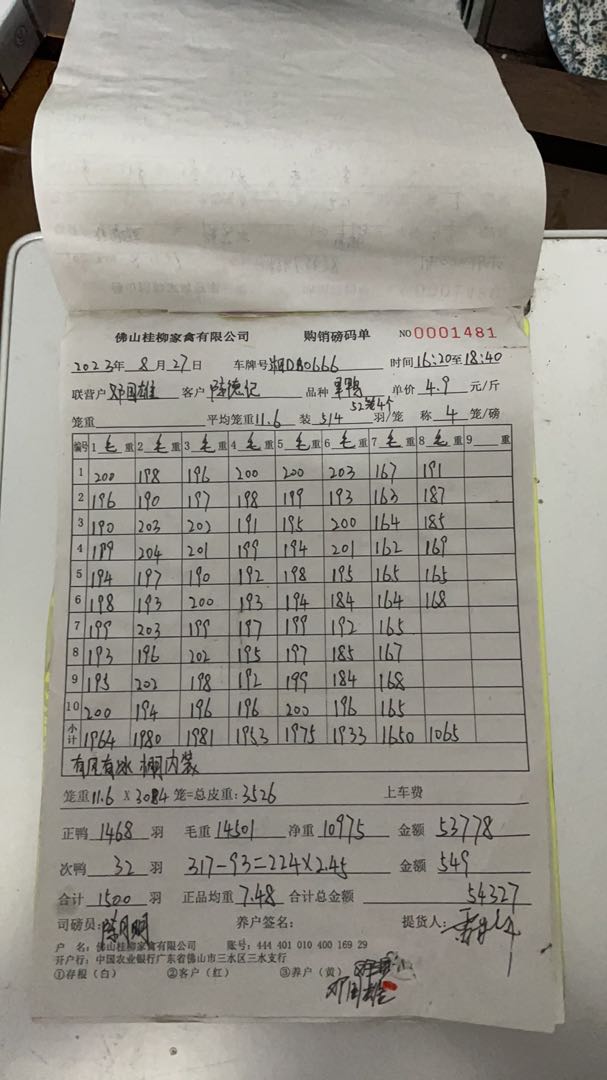 佛山桂柳家禽有限公司 购销磅码单 NO 0001481
2023年 8月27日 车牌号 湘DA0666 时间16:20至18:40
联营户 邓国雄 客户 陈德记 品种 单价 4.9 元/斤
52笼4个
笼重 平均笼重11.6 装 5/4 羽/笼 称 4 笼/磅
编号 1毛重 2毛重 3毛重 4毛重 5毛重 6毛重 7毛重 8毛重 9 重
1 200 198 196 200 200 203 167 191
2 196 190 197 198 199 193 163 187
3 190 203 202 191 195 200 164 185
4 199 204 201 199 194 201 162 169
5 194 197 190 192 198 195 165 165
6 198 193 200 193 194 184 164 168
7 199 203 199 197 199 192 165
8 193 196 202 195 197 185 167
9 195 202 198 192 199 184 168
10 200 194 196 196 200 196 165
小计 1964 1980 1981 1953 1975 1933 1650 1065
有风有冰 棚内装
笼重11.6 X 304 笼=总皮重:3526 上车费
正鸭 1468 羽 毛重 14501 净重 10975 金额 53778
次鸭 32 羽 317-93=224×2.45 金额 549
合计 1500 羽 正品均重 7.48 合计总金额 54327
司磅员: 养户签名: 提货人:
户 名:佛山桂柳家禽有限公司 账号:444 401 010 400 169 29
开户行:中国农业银行广东省佛山市三水区三水支行
①存根(白) ②客户(红) ③养户(黄)
邓国雄